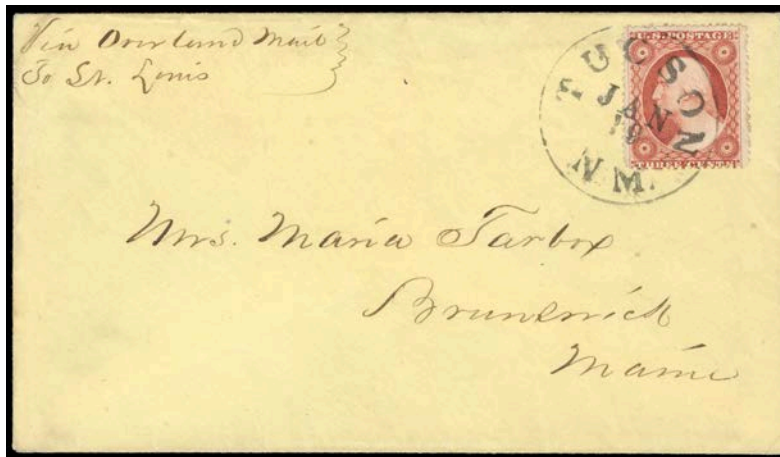 Via Overland Mail
To St. Louis
U.S. POSTAGE
THREE CENTS
TUCSON
JAN
19
N.M.
Mrs. Maria Tarbox
Brunswick
Maine